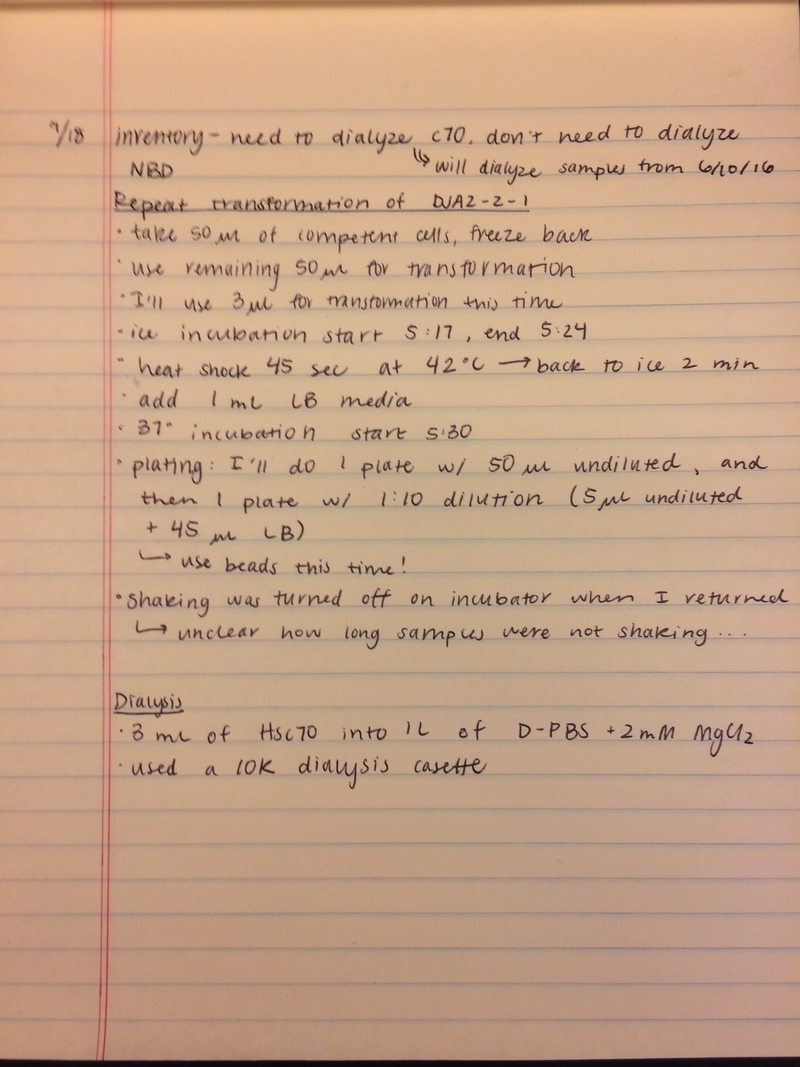 7/18 inventory - need to dialyze c70, don't need to dialyze
NBD ↳ will dialyze samples from 6/10/16
Repeat transformation of DJA2-2-1
• take 50 µl of competent cells, freeze back
• use remaining 50 µl for transformation
• I'll use 3 µl for transformation this time
• ice incubation start 5:17, end 5:24
• heat shock 45 sec at 42°C → back to ice 2 min
• add 1 mL LB media
• 37° incubation start 5:30
• plating: I'll do 1 plate w/ 50 µl undiluted, and
then 1 plate w/ 1:10 dilution (5 µl undiluted
+ 45 µl LB)
↳ use beads this time!
• Shaking was turned off on incubator when I returned
↳ unclear how long samples were not shaking...
Dialysis
• 3 mL of Hsc70 into 1L of D-PBS + 2mM MgCl2
• used a 10K dialysis casette